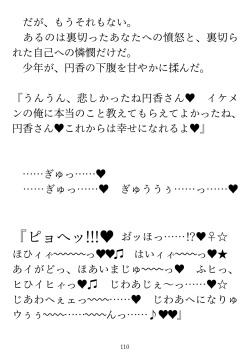 だが、もうそれもない。
あるのは裏切ったあなたへの憤怒と、裏切ら
れた自己への憐憫だけだ。
少年が、円香の下腹を甘やかに揉んだ。
『うんうん、悲しかったね円香さん♥ イケメ
ンの俺に本当のこと教えてもらえてよかったね、
円香さん♥これからは幸せになれるよ♥』
……ぎゅっ……♥
……ぎゅっ……♥ ぎゅううぅ……っ……♥
『ピョヘッ!!!♥ おッほっ……!?♥♀☆
ほひィィ~~~~っ♥♥♫ はいィィ~~~っ♥★
あイがどっ、ほあいまじゅ~~~っ♥ ふヒっ、
ヒひイヒィっ♥♫ じわあじぇぇ~……っ♥☆
じあわへぇェっ~~~♥ じわあへになりゅ
ウぅぅ~~~……んっ……♪♥♥』
110